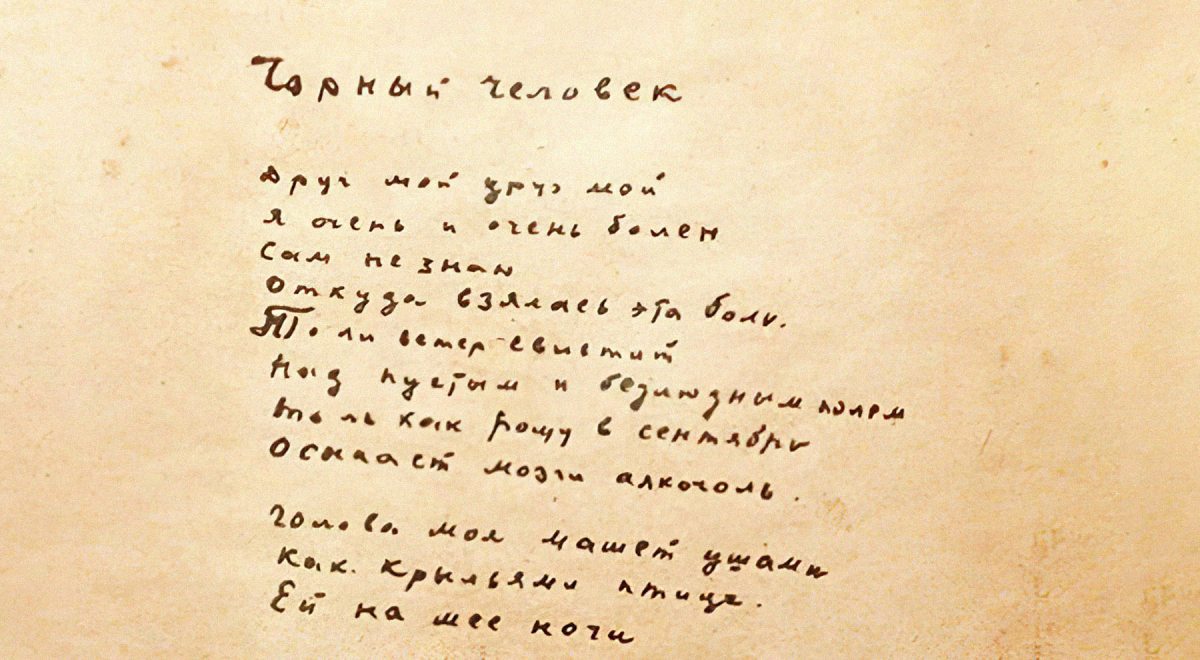 Чорный человек
Друг мой друг мой
Я очень и очень болен
Сам не знаю
Откуда взялась эта боль.
То ли ветер свистит
Над пустым и безлюдным полем
То ль как рощу в сентябрь
Осыпает мозги алкоголь.
Голова моя машет ушами
Как крыльями птица.
Ей на шее ночи